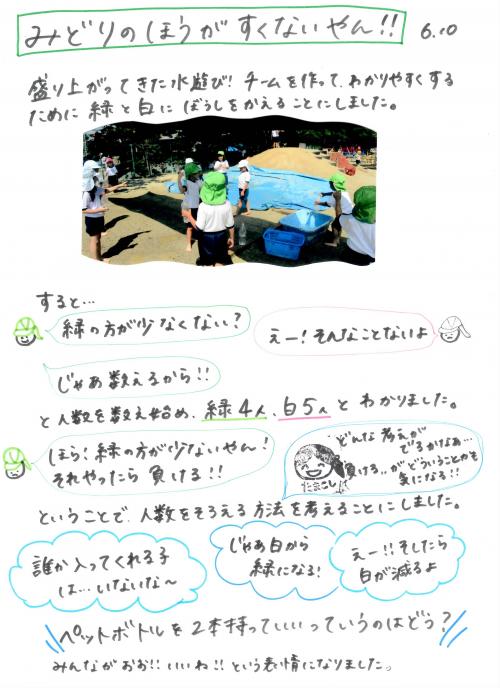 みどりのほうがすくないやん!!
6.10
盛り上がってきた水遊び!チームを作って、わかりやすくする
ために緑と白にぼうしをかえることにしました。
すると…
緑の方が少なくない?
えー!そんなことないよ
じゃあ数えるから!!
と人数を数え始め、緑4人、白5人とわかりました。
ほら!緑の方が少ないやん!
それやったら負ける!!
どんな考えが
でるかなぁ…
負ける..がどういうことかも
気になる!!
ということで、人数をそろえる方法を考えることにしました。
誰か入ってくれる子
は…いないな～
じゃあ白から
緑になる!
えー!!そしたら
白が減るよ
ペットボトルを2本持っていいっていうのはどう?
みんながおお!!いいね!!という表情になりました。